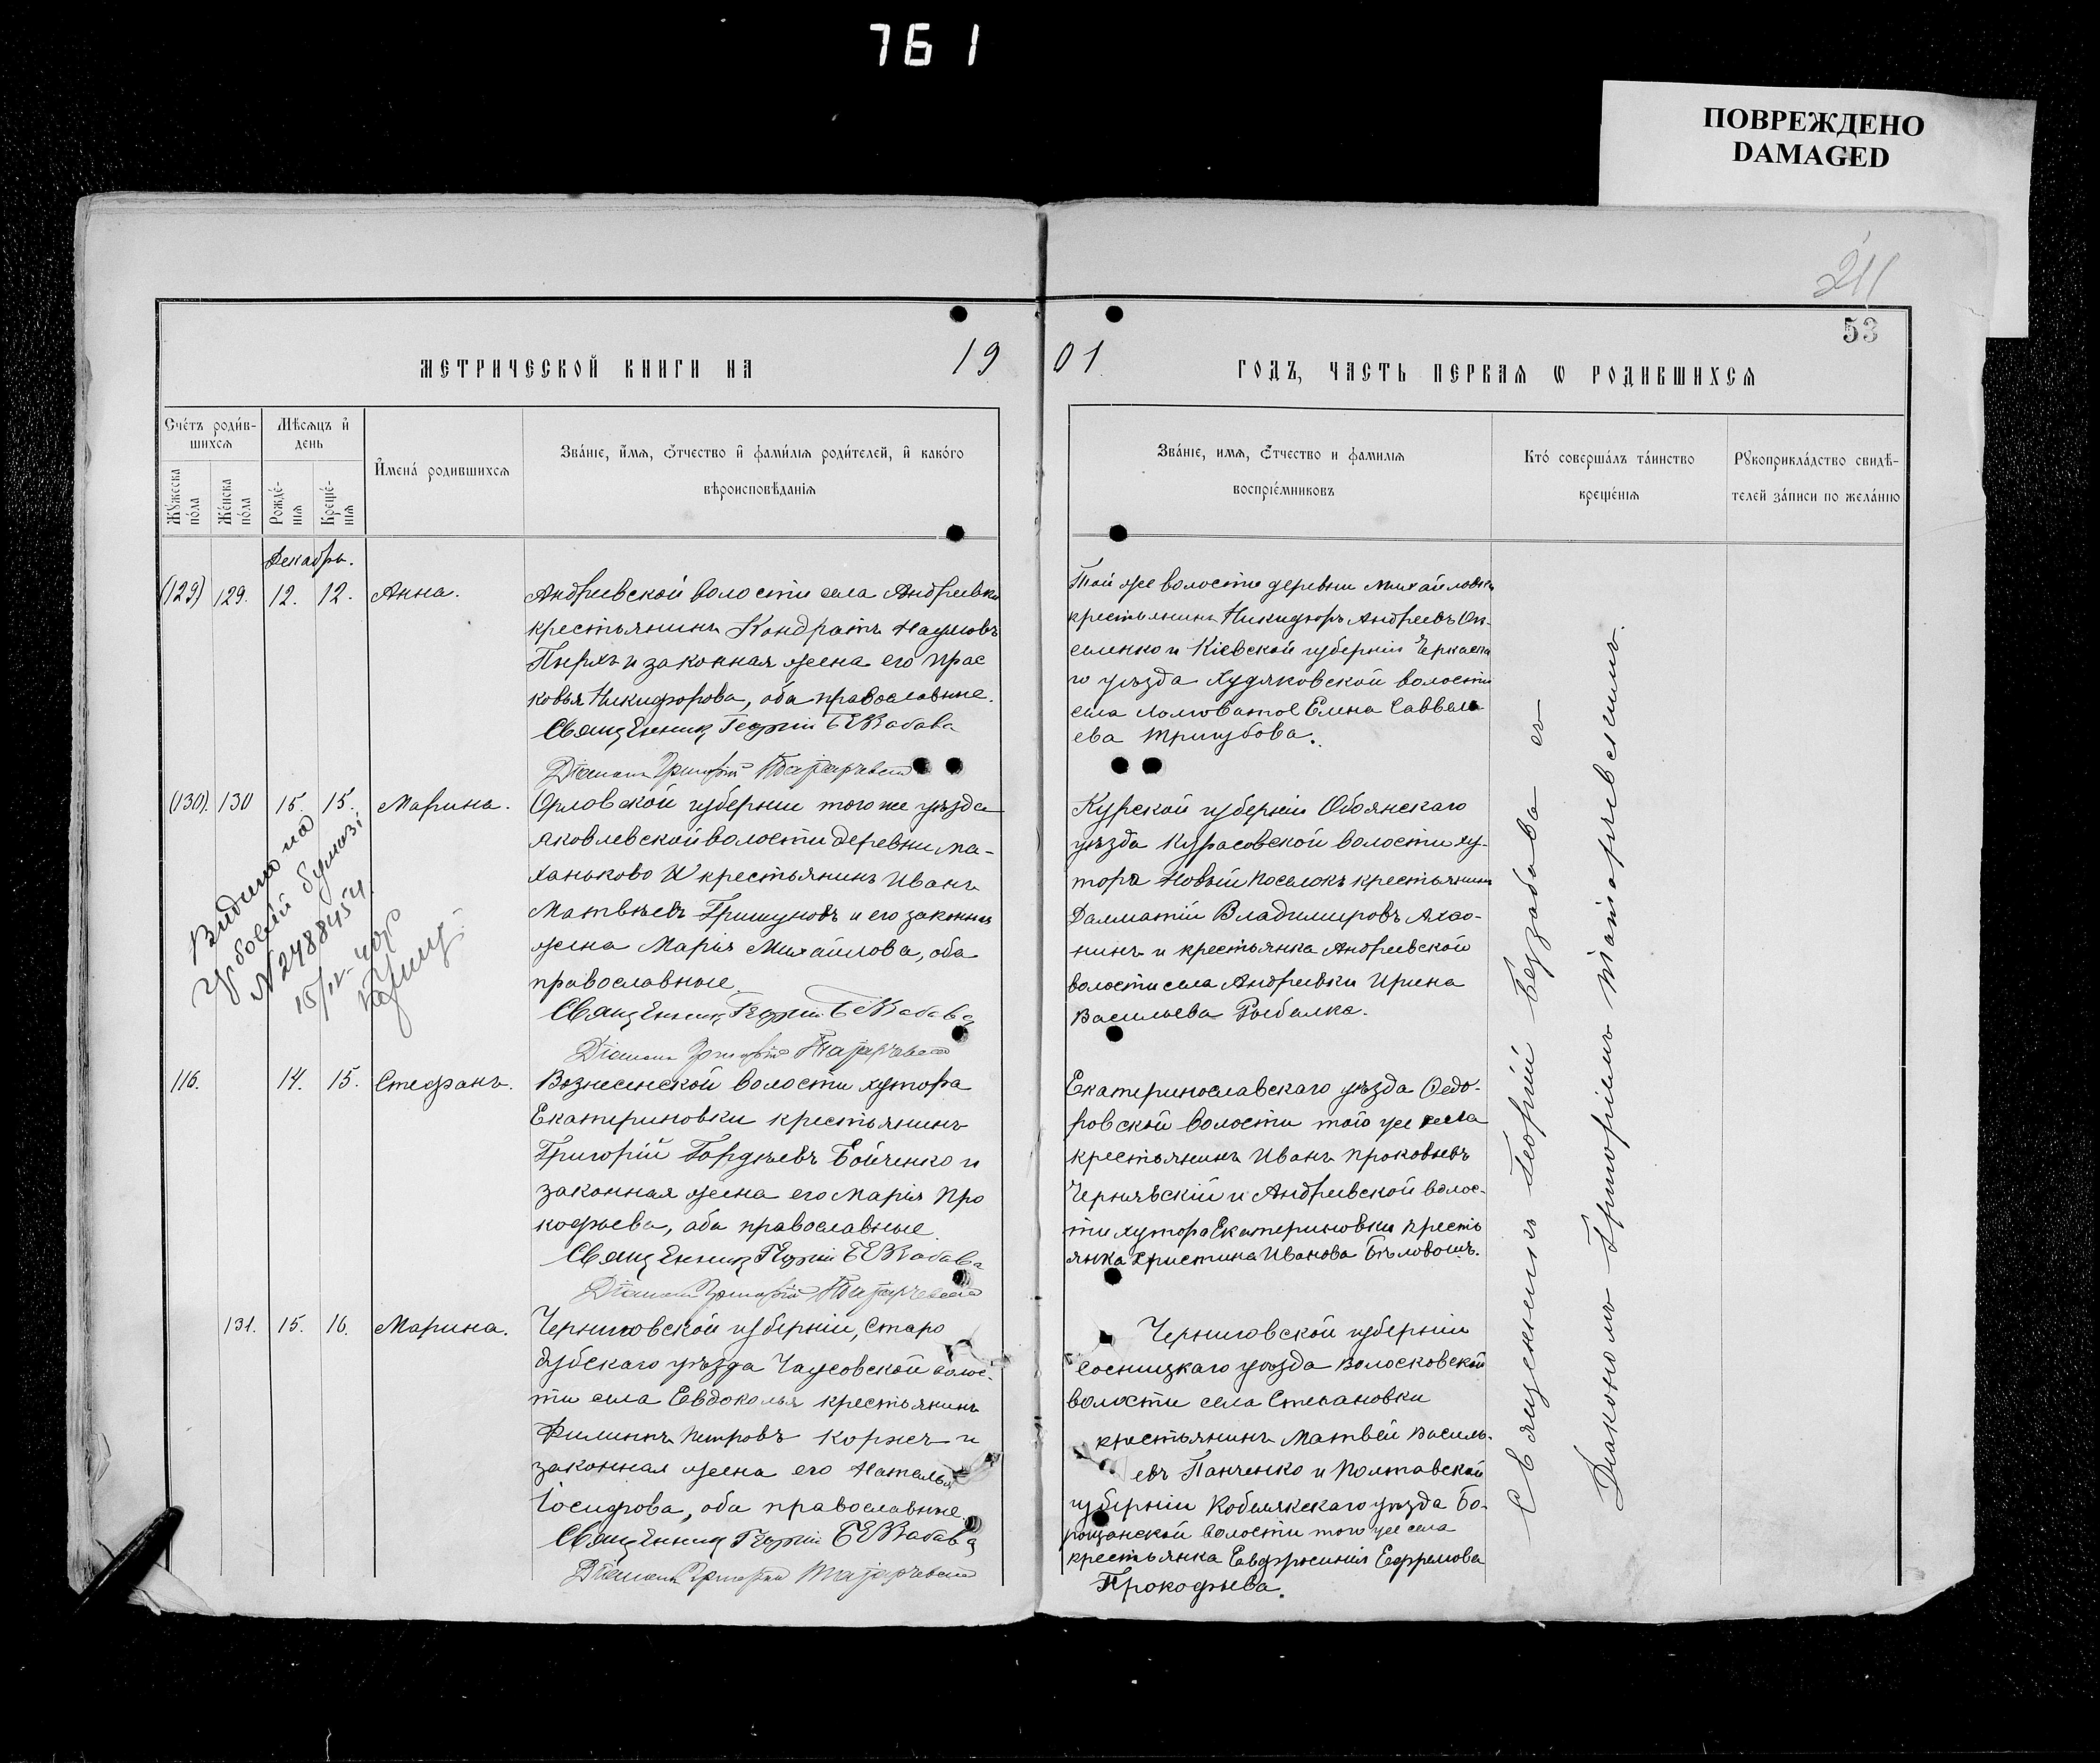 761
ПОВРЕЖДЕНО
DAMAGED
211
53
МЕТРИЧЕСКОЙ КНИГИ НА 19
01 ГОДЪ, ЧАСТЬ ПЕРВАЯ Ѡ РОДИВШИХСЯ
Счетъ родив-
шихся
Мужеска пола
Женска пола
Мѣсяцъ и
день
Рожде-
нія
Креще-
нія
Имена родившихся
Званіе, имя, отчество и фамилія родителей, и какого
вѣроисповѣданія
Званіе, имя, отчество и фамилія
воспріемниковъ
Кто совершалъ таинство
крещенія
Рукоприкладство свидѣ-
телей записи по желанію
Декабрь.
(129) 129. 12. 12. Анна.
Андреевской волости села Андреевки
крестьянинъ Кондратъ Наумовъ
и законная жена его Прас
ковья Никифорова, оба православные.
Священник Георгий Безабава
Діаконъ Григорій
Той же волости деревни Михайловки
крестьянинъ Никифоръ Андреевъ Ом-
еленко и Кіевской губерніи Черкаска
го уѣзда Худяковской волости
села Елена Савель
ева Тригубова.
(130). 130 15. 15. Марина.
Орловской губерніи того же уѣзда
Яковлевской волости деревни Ма-
ханьково крестьянинъ Иванъ
Матвѣевъ Гришуновъ и его законная
жена Марія Михайлова, оба
православные
Священник Георгий Безабава
Діаконъ Григорій
Курской губерніи Обоянскаго
уѣзда Курасовской волости ху-
тора Новый Поселокъ крестьянинъ
Далматій Владимировъ
нинъ и крестьянка Андреевской
волости села Андреевки Ирина
Васильева Рыбалка.
Видано на
бумазі
N 2488454
116. 14. 15. Стефанъ.
Вознесенской волости хутора
Екатериновки крестьянинъ
Григорій Гордѣевъ Бойченко и
законная жена его Марія Про
кофьева, оба православные
Священник Георгий Безабава
Діаконъ Григорій
Екатеринославскаго уѣзда Ѳедо-
ровской волости того же села
крестьянинъ Иванъ Проковьевъ
Чернявскій и Андреевской волос-
ти хутора Екатериновки кресть
янка Христина Иванова Бѣловолъ.
131. 15. 16. Марина.
Черниговской губерніи, Старо
дубскаго уѣзда Чаусовской волос-
ти села Евдоколья крестьянинъ
Филиппъ Петровъ Коржеч и
законная жена его Наталья
Іосифова, оба православные.
Священник Георгий Безабава
Діаконъ Григорій
Черниговской губерніи
Сосницкаго уѣзда Волосковской
волости села Степановки
крестьянинъ Матвей Василь-
евъ Панченко и Полтавской
губерніи Кобелякскаго уѣзда Бо-
рощанской волости того же села
крестьянка Евфросинія Ефремова
Прокофьева.
Священникъ Георгій Безабава съ
Діакономъ Григоріемъ